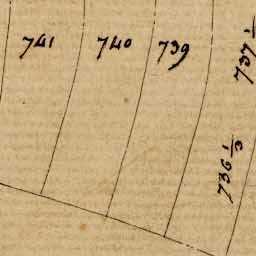 741 740 739
737 1
736 1/3